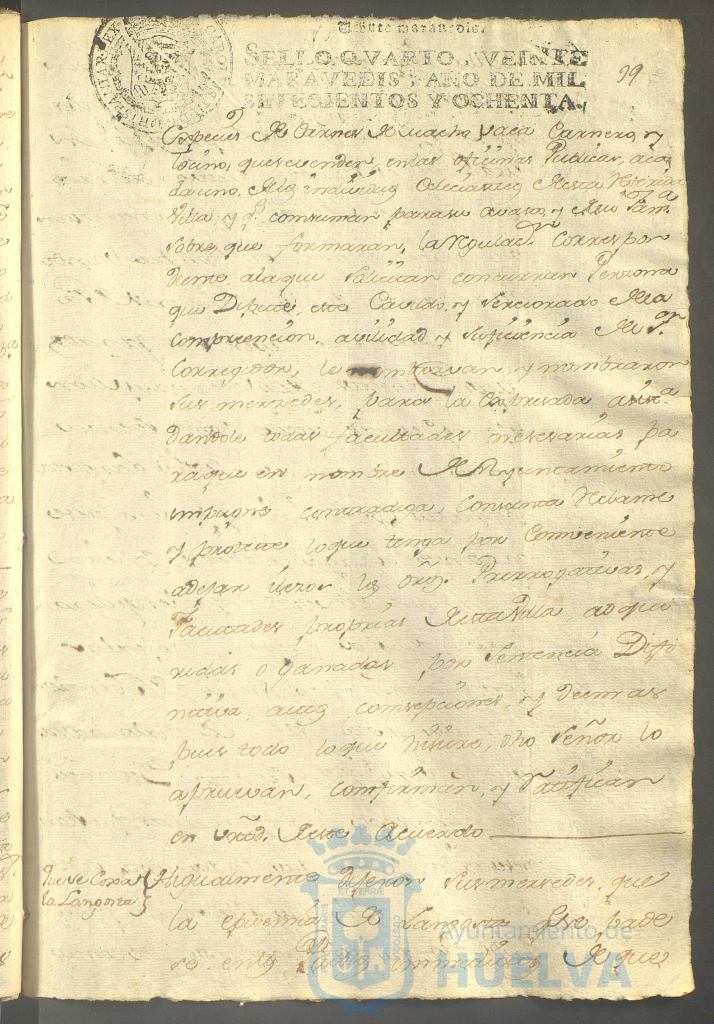 Veinte maravedis.
SELLO QVARTO, VEINTE
MARAVEDIS, AÑO DE MIL
SETECIENTOS Y OCHENTA.
99
Especies de Carnes de Macho Vaca Carnero, y
tocino, que se venden, en las oficinas Publicas, a ca
da uno, de los individuos Eclesiasticos de esta
Villa, y qe. consuman para su avasto, y de su Fama.
sobre que formaran, la Regulac.n Correspon
diente a la que solicitan concurran Perzona
que Dipute, este Cavildo, y serciorado de la
comprencion, avilidad, y suficiencia del Sor.
Corregidor, le nombravan, y nombraron
sus mersedes, para la Expresada asist.a
dandole todas facultades nesesarias pa
ra que en nombre del Ayuntamiento
impugne contradiga, Consienta Reclame
y proteste lo que tenga por Combeniente
a dejar ilezos los dros. Prerrogativas, y
Facultades proprias de esta Villa, adqui
ridas o ganadas por Sentencia Difi
nitiva autos consepciones, y demas
pues todo lo que hisiere, dho Señor lo
apruevan, confirman, y Ratifican
en virtd. de este Acuerdo
Que se Coxa
la Langosta
Igualmente dijeron sus mersedes, que
la epidemia de Langosta qe se pade
se en los Pueblos inmediatos de que
Ayuntamiento de
HUELVA